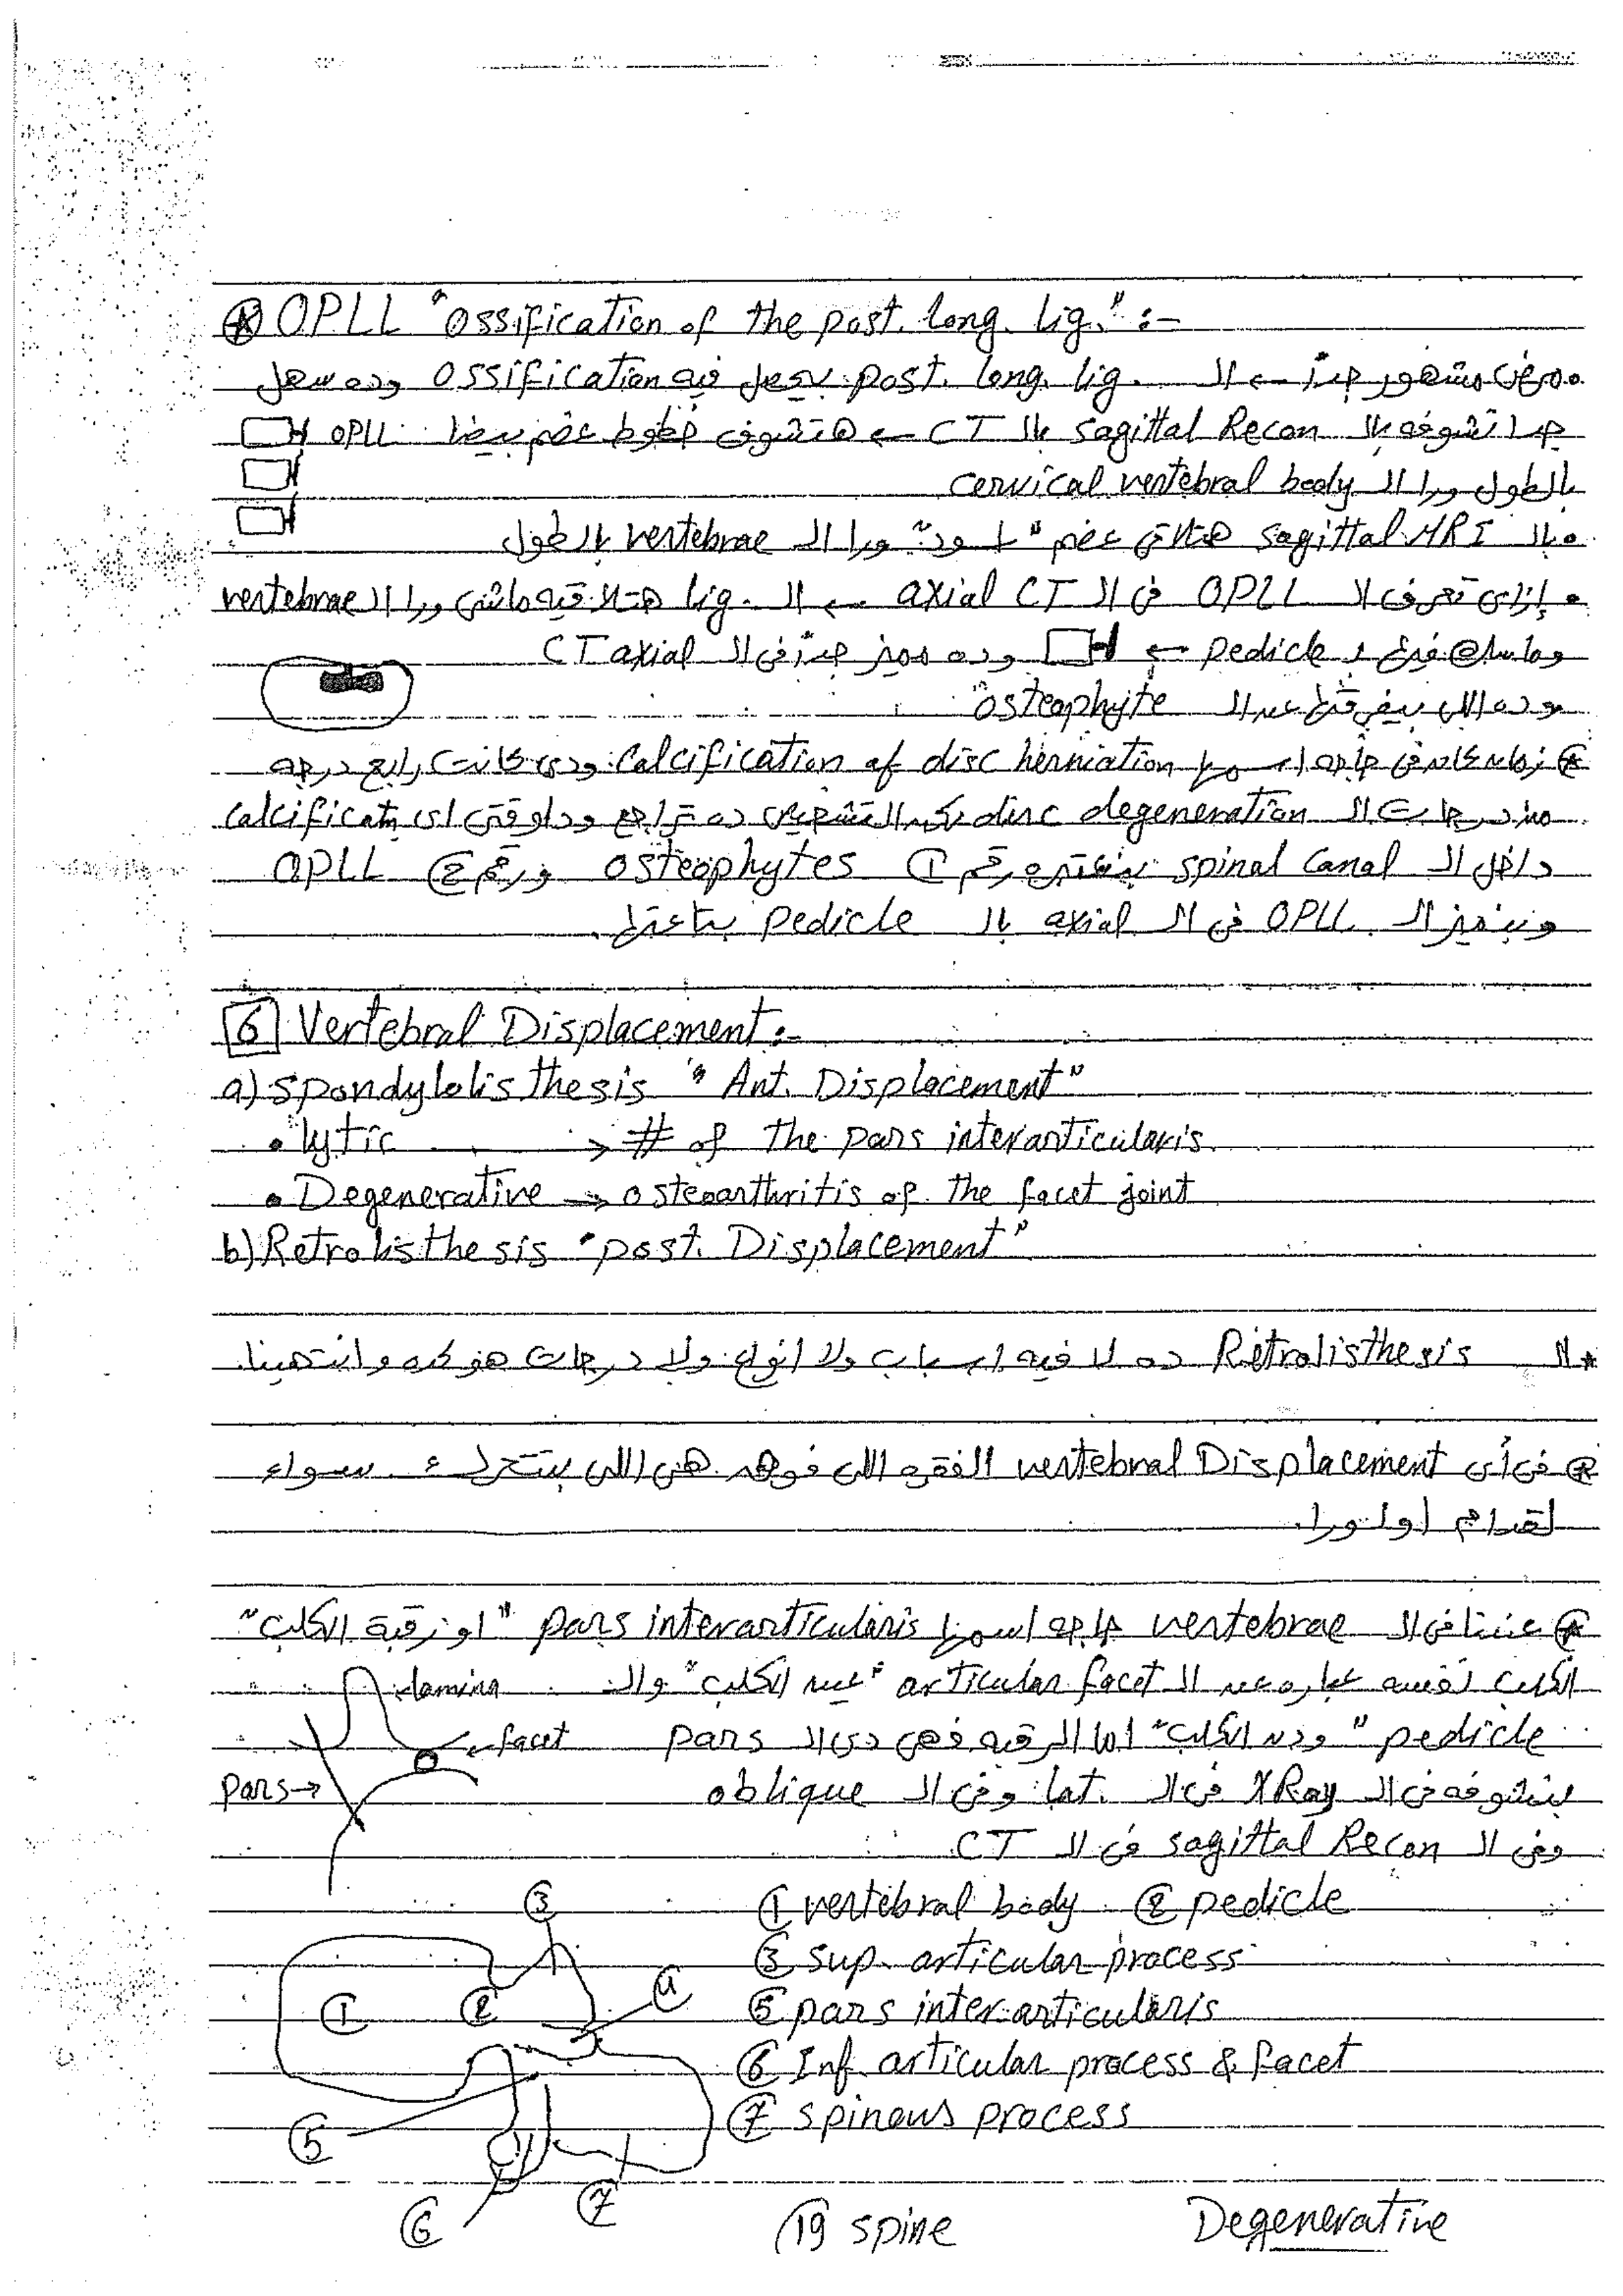 ⊛ OPLL "Ossification of the post. long. lig." :-
مرض مشهور جداً ← الـ post. long. lig. بيحصل فيه ossification وده سهل
جدا تشوفه بالـ sagittal Recon بالـ CT ← هتشوف خطوط عضم بيضا OPLL
بالطول ورا الـ cervical vertebral body
• بالـ sagittal MRI هتلاقى عضم "اسود" ورا الـ vertebrae بالطول
• إزاى تعرف الـ OPLL فى الـ axial CT ← الـ lig. هتلاقيه ماشى ورا الـ vertebrae
وماسك فيها بـ pedicle ← وده مميز جداً فى الـ CT axial
وده اللى بيفرقها عن الـ "osteophyte"
⊛ زمان كان فى حاجه اسمها calcification of disc herniation ودى كانت رابع درجه
من درجات الـ disc degeneration لكن التشخيص ده تراجع ودلوقتى اى calcificatn
داخل الـ spinal canal بنعتبره رقم ① osteophytes ورقم ② OPLL
وبنميز الـ OPLL فى الـ axial بالـ pedicle بتاعتها.
6 Vertebral Displacement :-
a) Spondylolisthesis "Ant. Displacement"
• lytic → # of the pars interarticularis.
• Degenerative → osteoarthritis of the facet joint
b) Retrolisthesis "post. Displacement"
* الـ Retrolisthesis ده لا فيه اسباب ولا انواع ولا درجات هو كده وانتهينا.
⊛ فى أى vertebral Displacement الفقره اللى فوق هى اللى بتتحرك سواء
لقدام او لورا.
⊛ عندنا فى الـ vertebrae حاجه اسمها pars interarticularis "او رقبة الكلب"
الكلب نفسه عباره عن الـ articular facet "عين الكلب" والـ
pedicle "ودن الكلب" اما الرقبه فهى دى الـ pars
بنشوفه فى الـ XRay فى الـ lat. وفى الـ oblique
وفى الـ sagittal Recon فى الـ CT
lamina
facet
pars →
① vertebral body ② pedicle
③ sup. articular process
⑤ pars interarticularis
⑥ Inf. articular process & facet
⑦ spinous process
③
① ② ④
⑤
⑥ ⑦
19 spine Degenerative